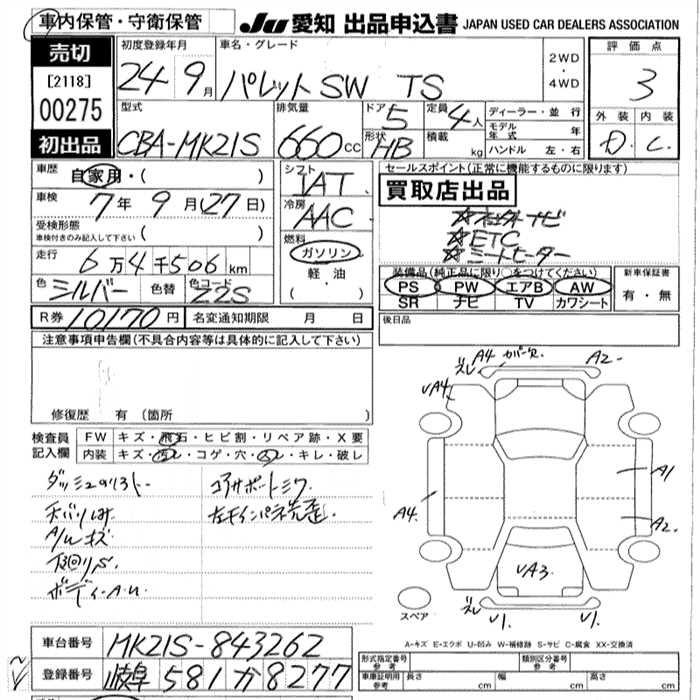 車内保管・守衛保管
JU 愛知 出品申込書 JAPAN USED CAR DEALERS ASSOCIATION
売切
[2118]
00275
初出品
初度登録年月
24 9月
車名・グレード
パレットSW TS
2WD・4WD
評価点
3
外装 内装
D. C.
型式
CBA-MK21S
排気量
660cc
ドア 5
形状 HB
定員 4人
積載 kg
ディーラー・並行
モデル年式 年
ハンドル 左・右
車歴
自家用・( )
車検 7年9月(27日)
受検形態
車検付きのみ記入して下さい ( )
走行 6万4千506km
色 シルバー 色替 色コード Z2S
シフト
IAT
冷房
AAC
燃料
ガソリン
軽・油
( ・ )
セールスポイント(正常に機能するものに限ります)
買取店出品
☆ETC
☆シートヒーター
装備品(純正品に限り○をつけてください)
PS PW エアB AW
SR ナビ TV カワシート
新車保証書
有・無
R券 10170円 名変通知期限 月 日
後日品
注意事項申告欄(不具合内容等は具体的に記入して下さい)
修復歴 有(箇所 )
検査員記入欄
FW キズ・飛石・ヒビ割・リペア跡・X要
内装 キズ・汚レ・コゲ・穴・スレ・キレ・破レ
コアサポートミワ
A/Wキズ
下回りS
ボディ・A.U.
ズレ A4 カバー欠 A2
VA4
A1
A4
A2
VA3
ズレ V1. V1.
スペア
A-キズ E-エクボ U-凹み W-補修跡 S-サビ C-腐食 XX-交換済
車台番号 MK21S-843262
登録番号 岐阜 581 か 8277
形式指定番号 参考
類別区分番号 参考
車庫証明用 参考 長さ cm 幅 cm 高さ cm